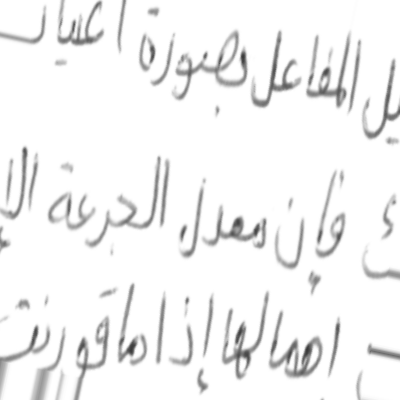 يل المفاعل بصورة اعتيا
فإن معدل الجرعة الإ
اهمالها إذا ما قورنت